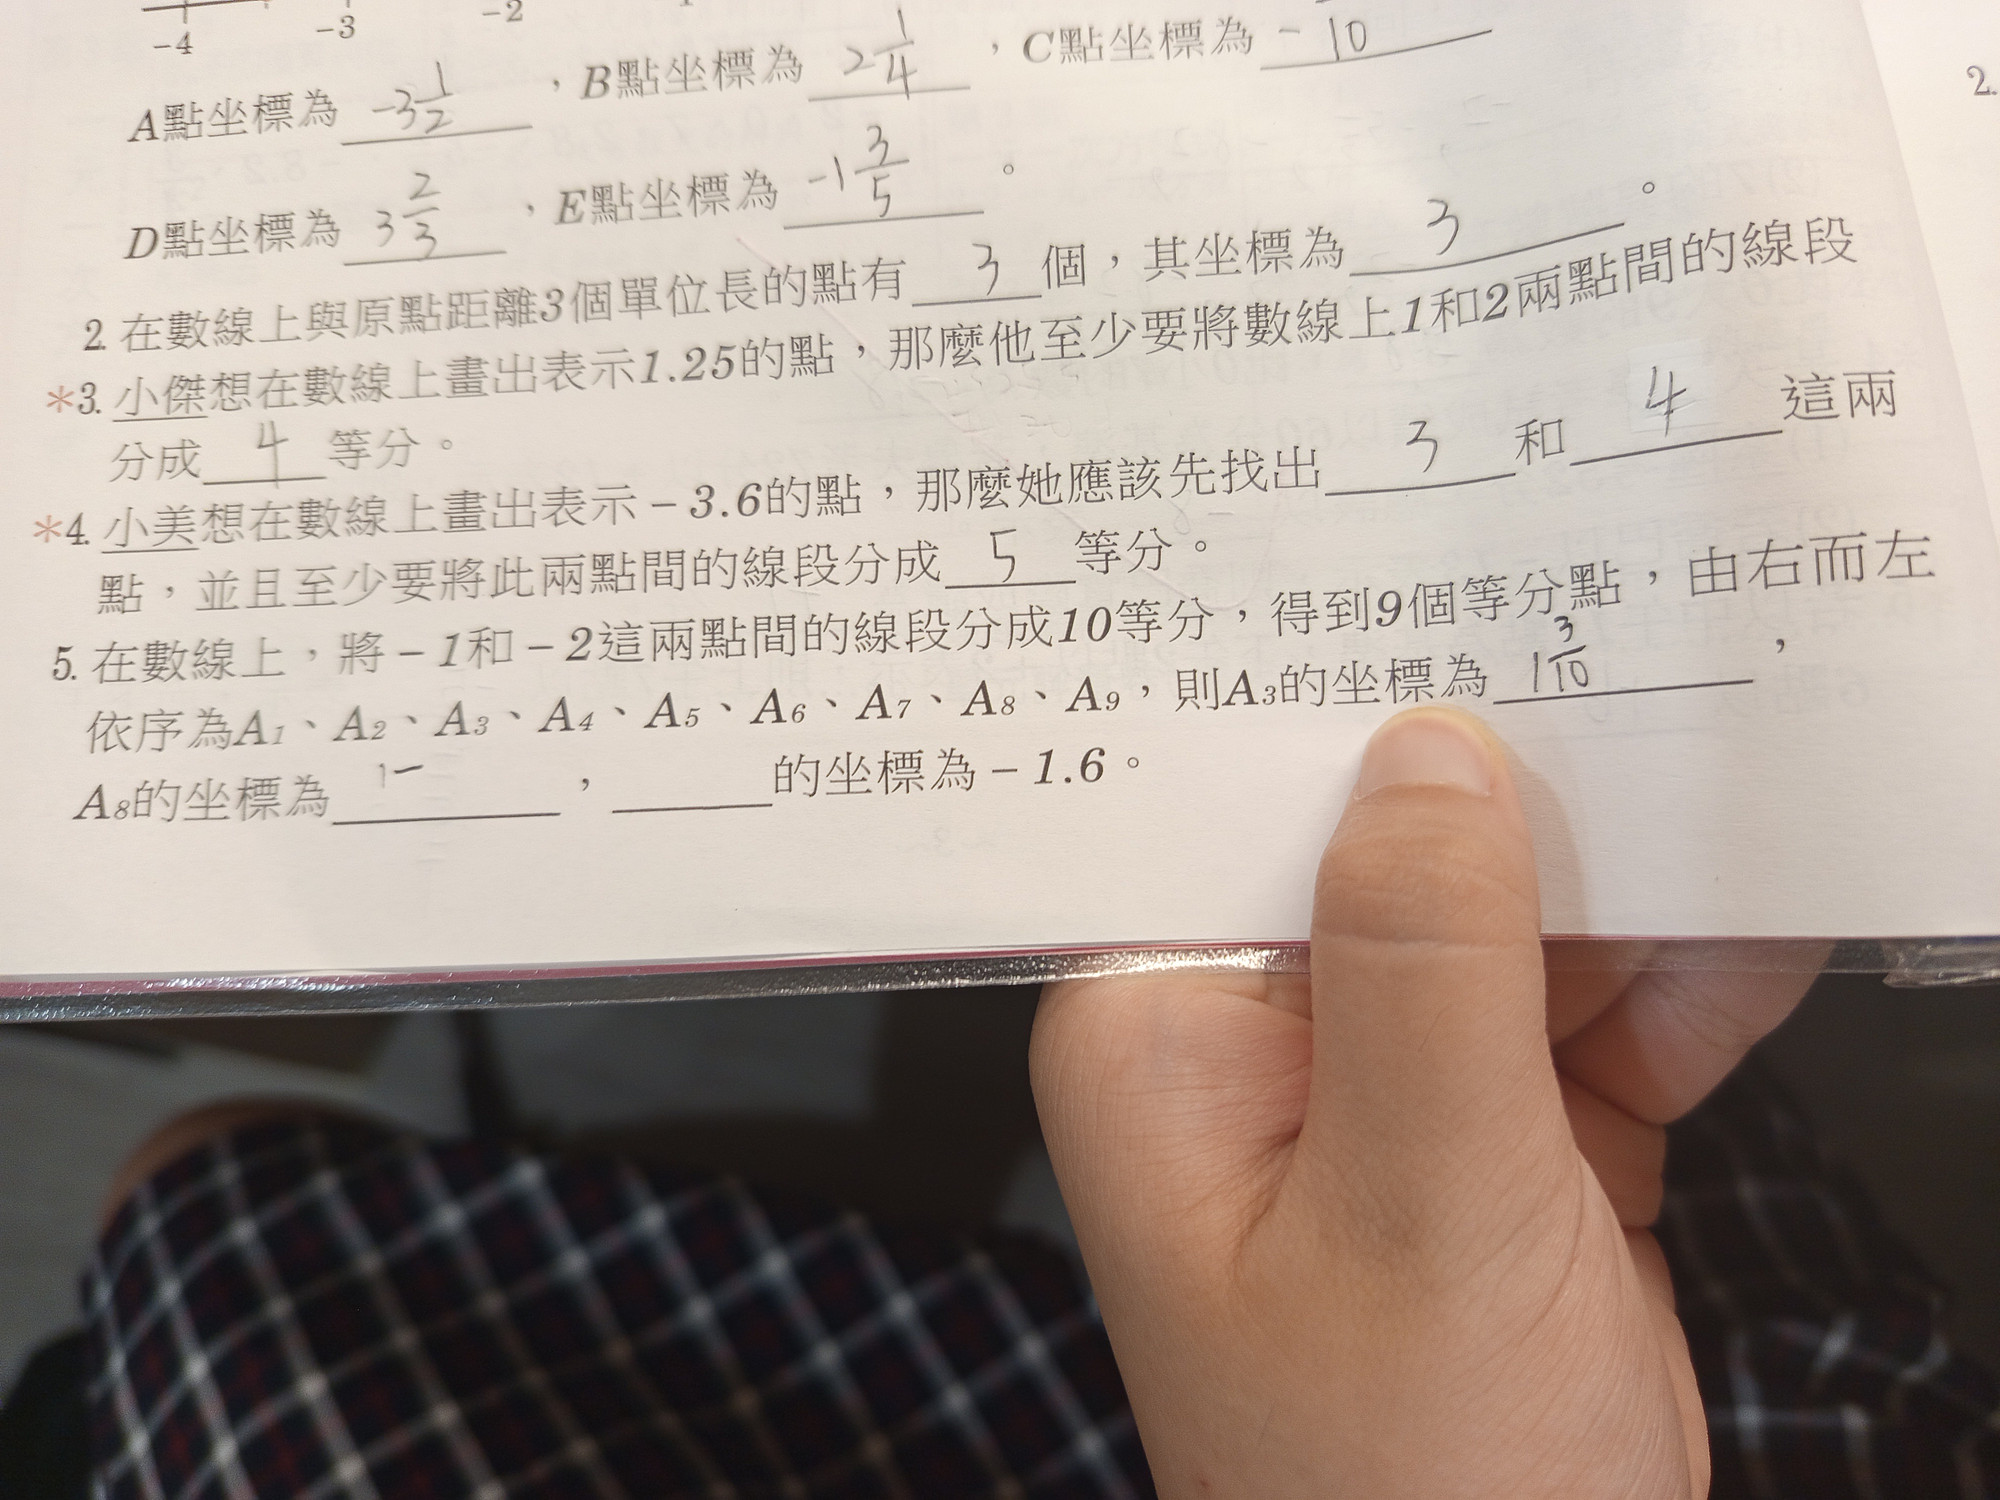 -4 -3 -2
A點坐標為 -3 1/2 ，B點坐標為 2 1/4 ，C點坐標為 - /10
D點坐標為 3 2/3 ，E點坐標為 -1 3/5 。
2. 在數線上與原點距離3個單位長的點有 3 個，其坐標為 3 。
*3. 小傑想在數線上畫出表示1.25的點，那麼他至少要將數線上1和2兩點間的線段
分成 4 等分。
*4. 小美想在數線上畫出表示－3.6的點，那麼她應該先找出 3 和 4 這兩
點，並且至少要將此兩點間的線段分成 5 等分。
5. 在數線上，將－1和－2這兩點間的線段分成10等分，得到9個等分點，由右而左
依序為A1、A2、A3、A4、A5、A6、A7、A8、A9，則A3的坐標為 1 3/10 ，
A8的坐標為 1- ， 的坐標為－1.6。
2.